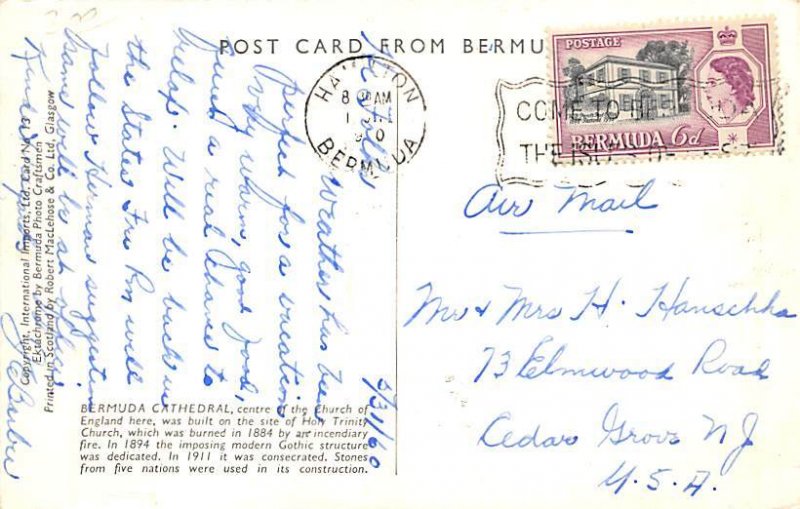 POST CARD FROM BERMU
HAMILTON
8 AM
BERMUDA
POSTAGE
BERMUDA 6d
COME TO BE
THE ISL
Air Mail
Mr & Mrs H. Hanschka
73 Elmwood Road
Cedar Grove NJ
U.S.A.
5/31/60
Hi Folks
Weather has been
perfect for a vacation
very warm, good food,
and a real chance to
relax. Will be back in
the States Fri Pm will
follow Herman suggestion
same will be at office
Kind
Barber
BERMUDA CATHEDRAL, centre of the Church of
England here, was built on the site of Holy Trinity
Church, which was burned in 1884 by an incendiary
fire. In 1894 the imposing modern Gothic structure
was dedicated. In 1911 it was consecrated. Stones
from five nations were used in its construction.
Copyright, International Imports, Ltd. Card No. 13
Ektachrome by Bermuda Photo Craftsmen
Printed in Scotland by Robert MacLehose & Co. Ltd, Glasgow